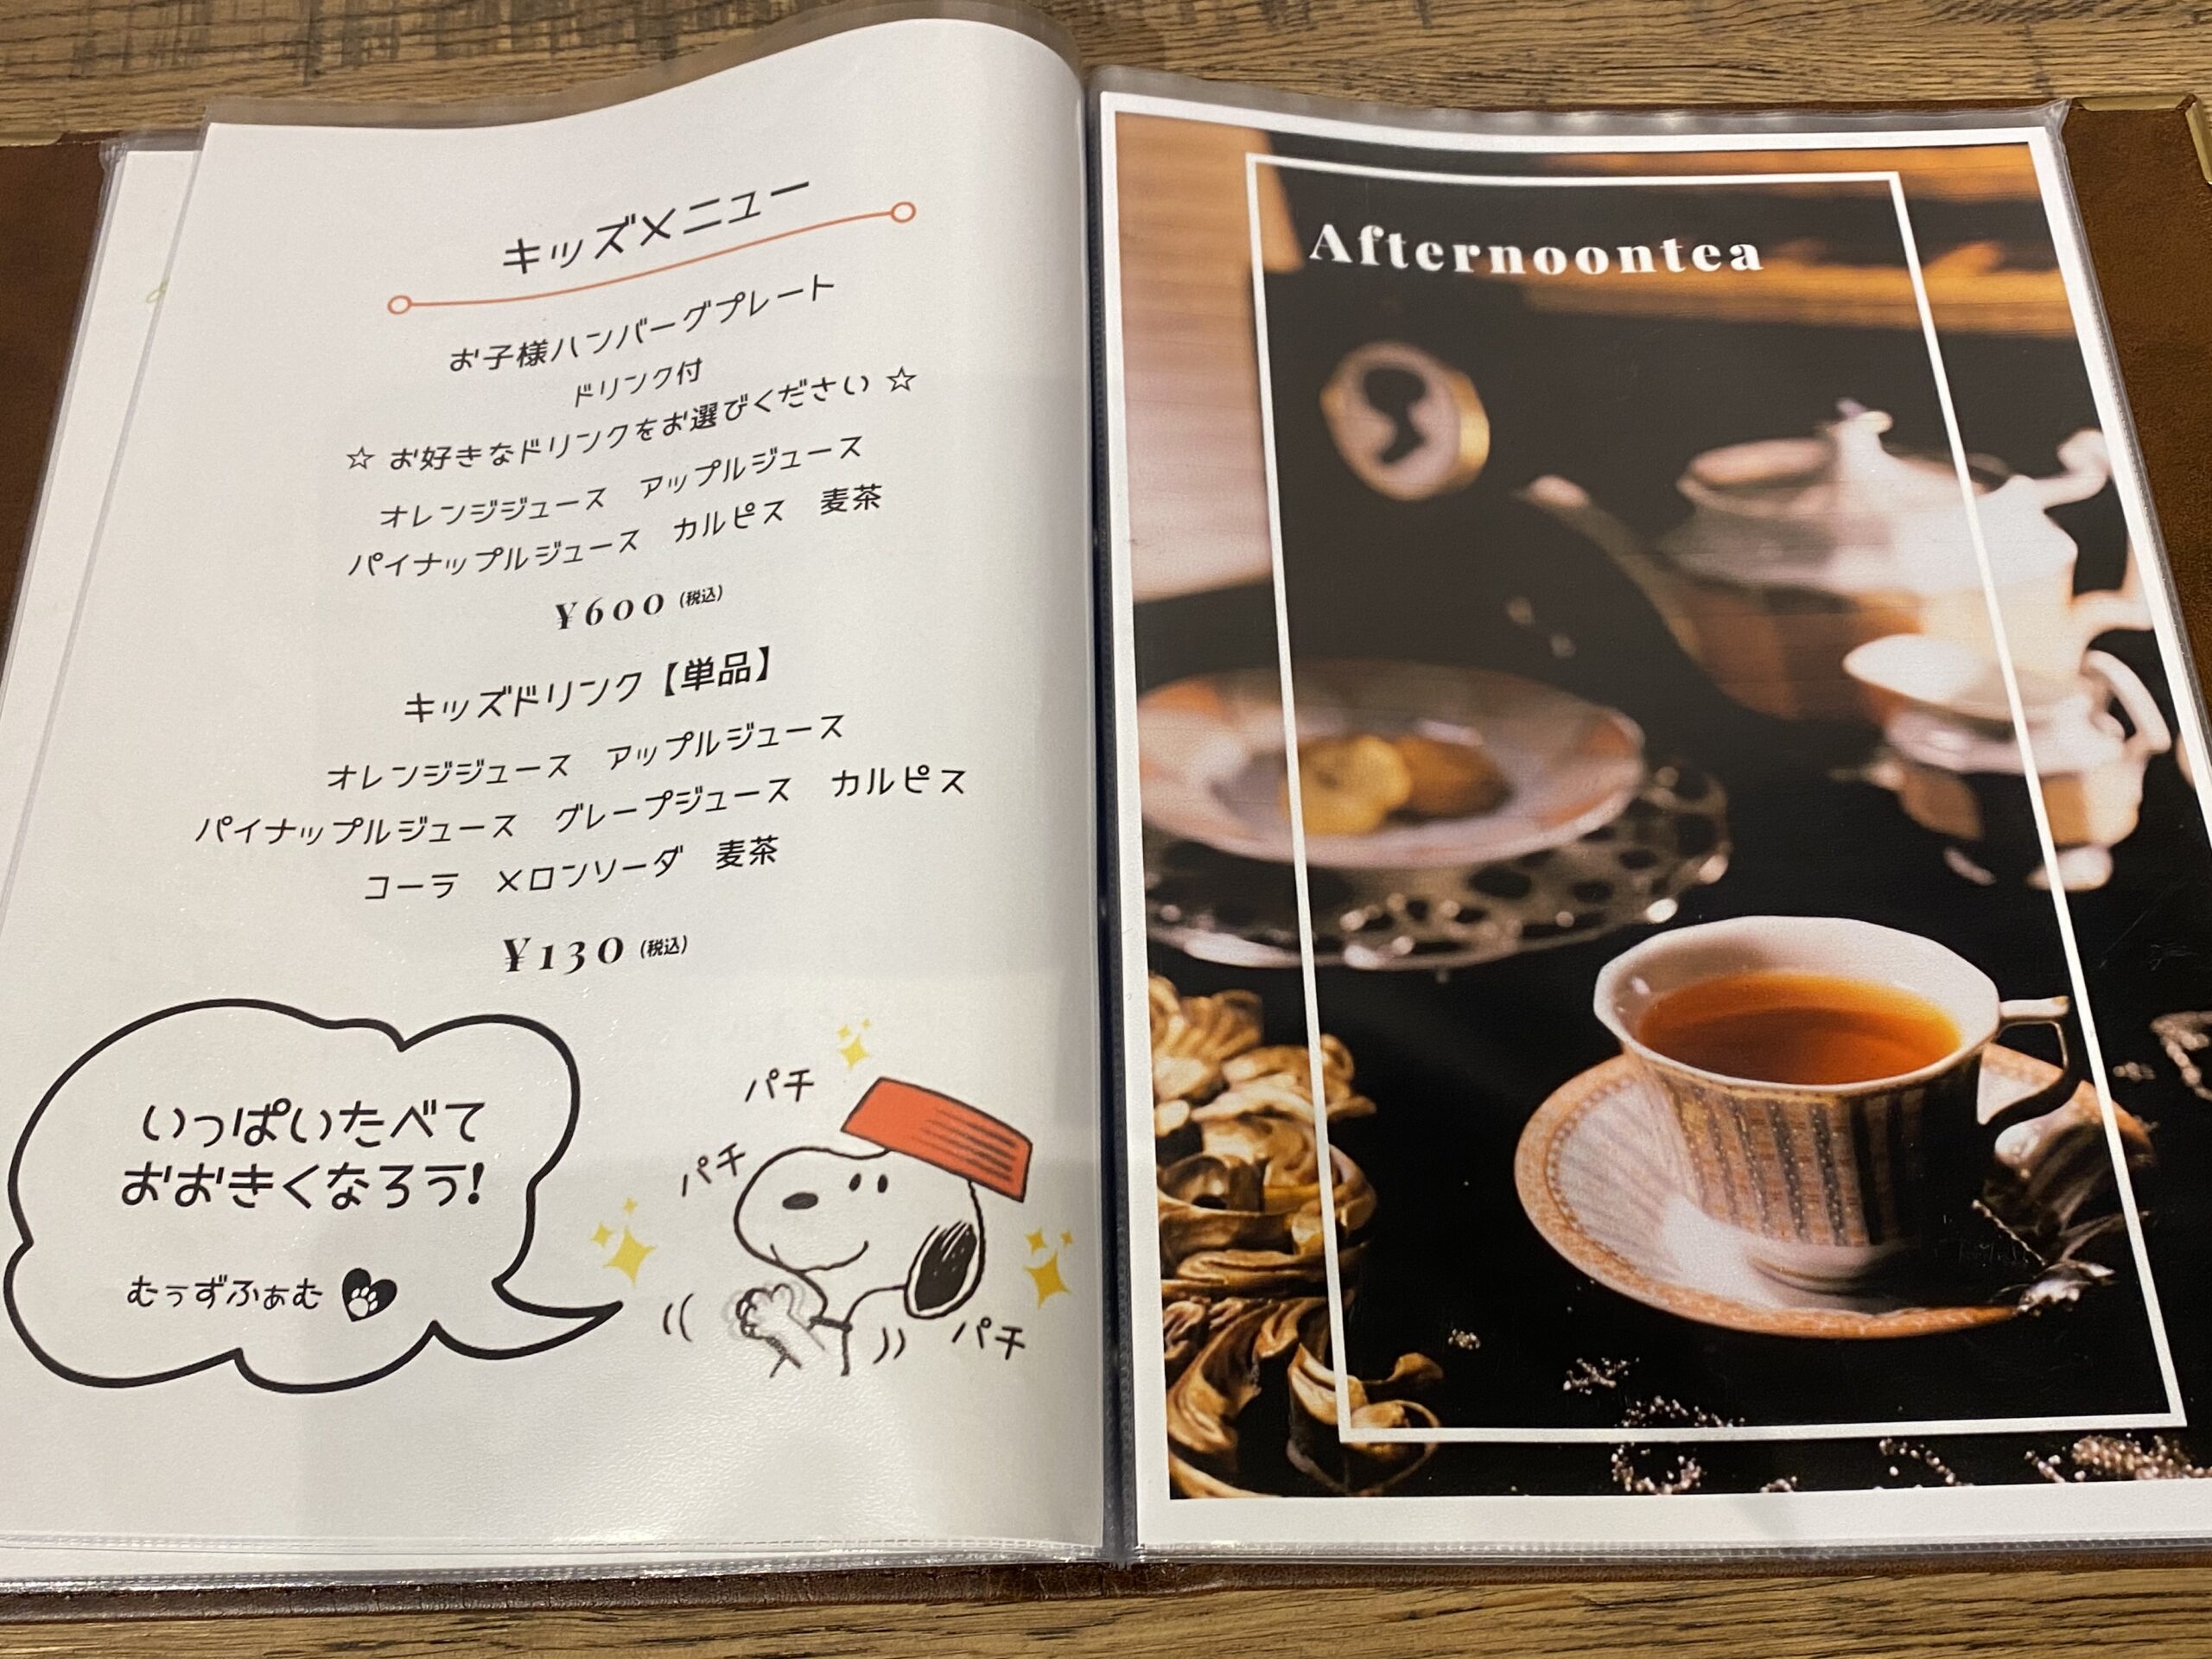 キッズメニュー
お子様ハンバーグプレート
ドリンク付
☆ お好きなドリンクをお選びください ☆
オレンジジュース　アップルジュース
パイナップルジュース　カルピス　麦茶
¥600 (税込)
キッズドリンク【単品】
オレンジジュース　アップルジュース
パイナップルジュース　グレープジュース　カルピス
コーラ　メロンソーダ　麦茶
¥130 (税込)
いっぱいたべて
おおきくなろう!
むぅずふぁむ
パチ
パチ
パチ
Afternoontea